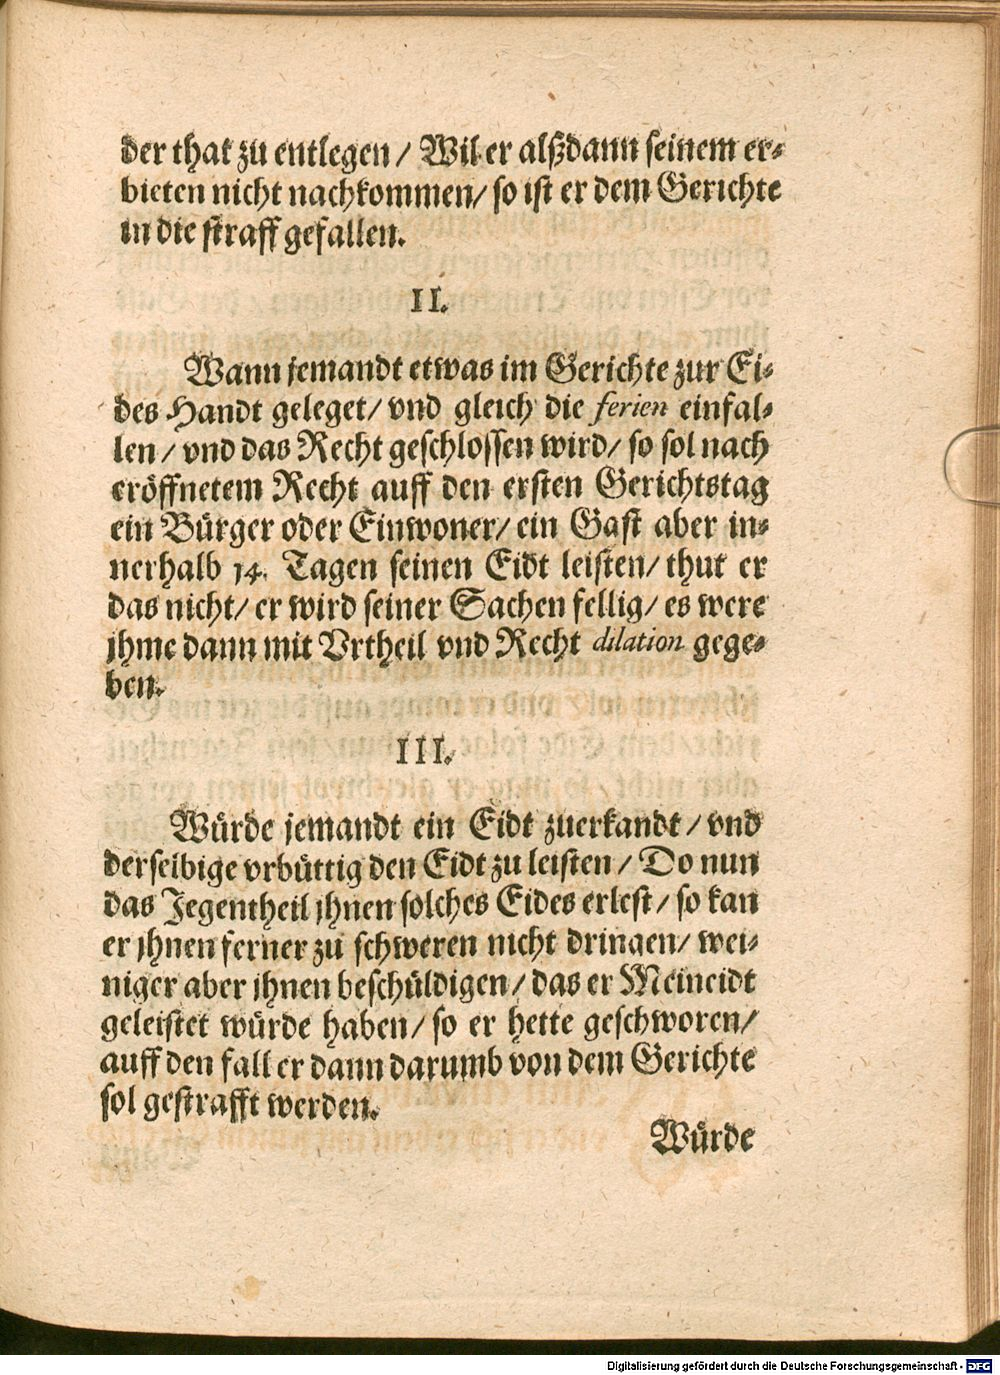 der that zu entlegen / Wil er alßdann seinem er-
bieten nicht nachkommen / so ist er dem Gerichte
in die straff gefallen.
II.
Wann jemandt etwas im Gerichte zur Ei-
des Handt geleget / vnd gleich die ferien einfal-
len / vnd das Recht geschlossen wird / so sol nach
eröffnetem Recht auff den ersten Gerichtstag
ein Bürger oder Einwoner / ein Gast aber in-
nerhalb 14. Tagen seinen Eidt leisten / thut er
das nicht / er wird seiner Sachen fellig / es were
jhme dann mit Vrtheil vnd Recht dilation gege-
ben.
III.
Würde jemandt ein Eidt zuerkandt / vnd
derselbige vrbüttig den Eidt zu leisten / Do nun
das Jegentheil jhnen solches Eides erlest / so kan
er jhnen ferner zu schweren nicht dringen / wei-
niger aber jhnen beschüldigen / das er Meineidt
geleistet würde haben / so er hette geschworen /
auff den fall er dann darumb von dem Gerichte
sol gestrafft werden.
Würde
Digitalisierung gefördert durch die Deutsche Forschungsgemeinschaft - DFG